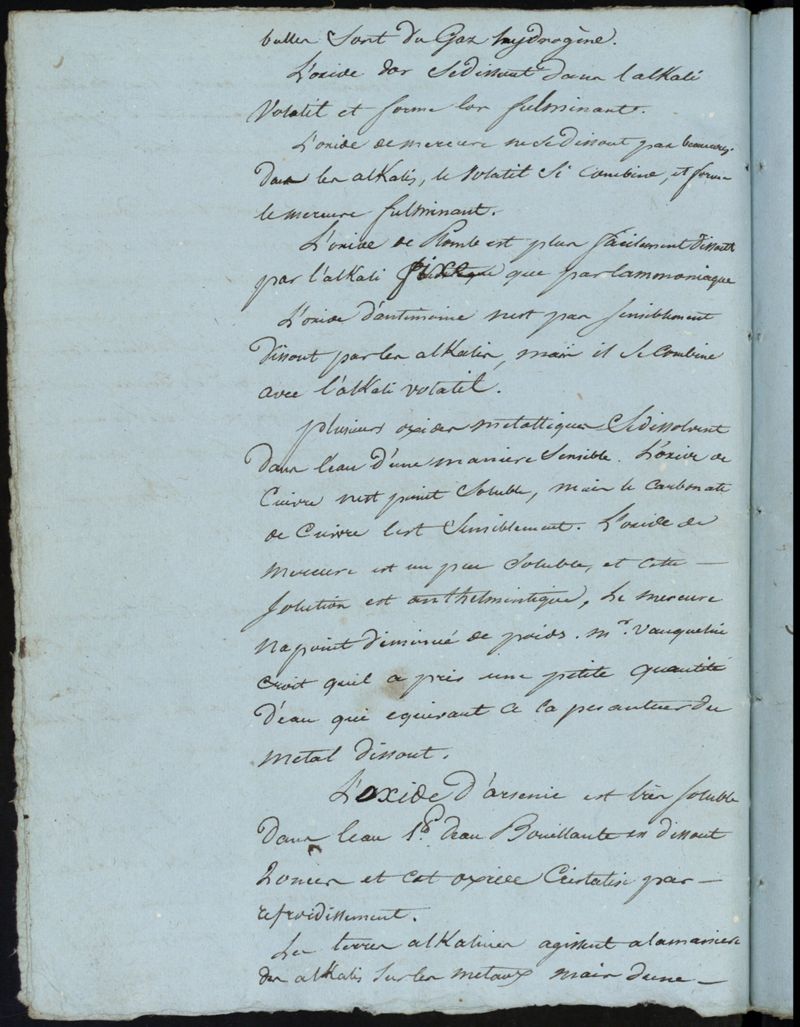 bulles sont du Gaz hydrogène.
L'oxide dor se dissout dans l'alkali
Volatil et forme lor fulminant.
L'oxide de mercure ne se dissout pas beaucoup
dans les alKalis, le Volatil si combine, et forme
le mercure fulminant.
L'oxide de Plomb est plus facilement dissout
par l'alKali fixe que par lammoniaque
L'oxide d'antimoine nest pas sensiblement
dissout par les alKalis, mais il se combine
avec l'alKali volatil.
plusieurs oxides metalliques se dissolvent
dans leau d'une maniere sensible. L'oxide de
Cuivre nest point soluble, mais le carbonate
de Cuivre lest sensiblement. L'oxide de
mercure est un peu soluble, et cette —
solution est anthelmintique, Le mercure
na point diminué de poids. mr. vauquelin
croit quil a pris une petite quantité
d'eau qui equivaut a la pesanteur du
metal dissout.
L'oxide d'arsenic est très soluble
dans leau deau Bouillante en dissout
2 onces et cet oxide Cristalise par —
refroidissement.
Les terres alKalines agissent a la maniere
des alKalis sur les metaux mais dune —